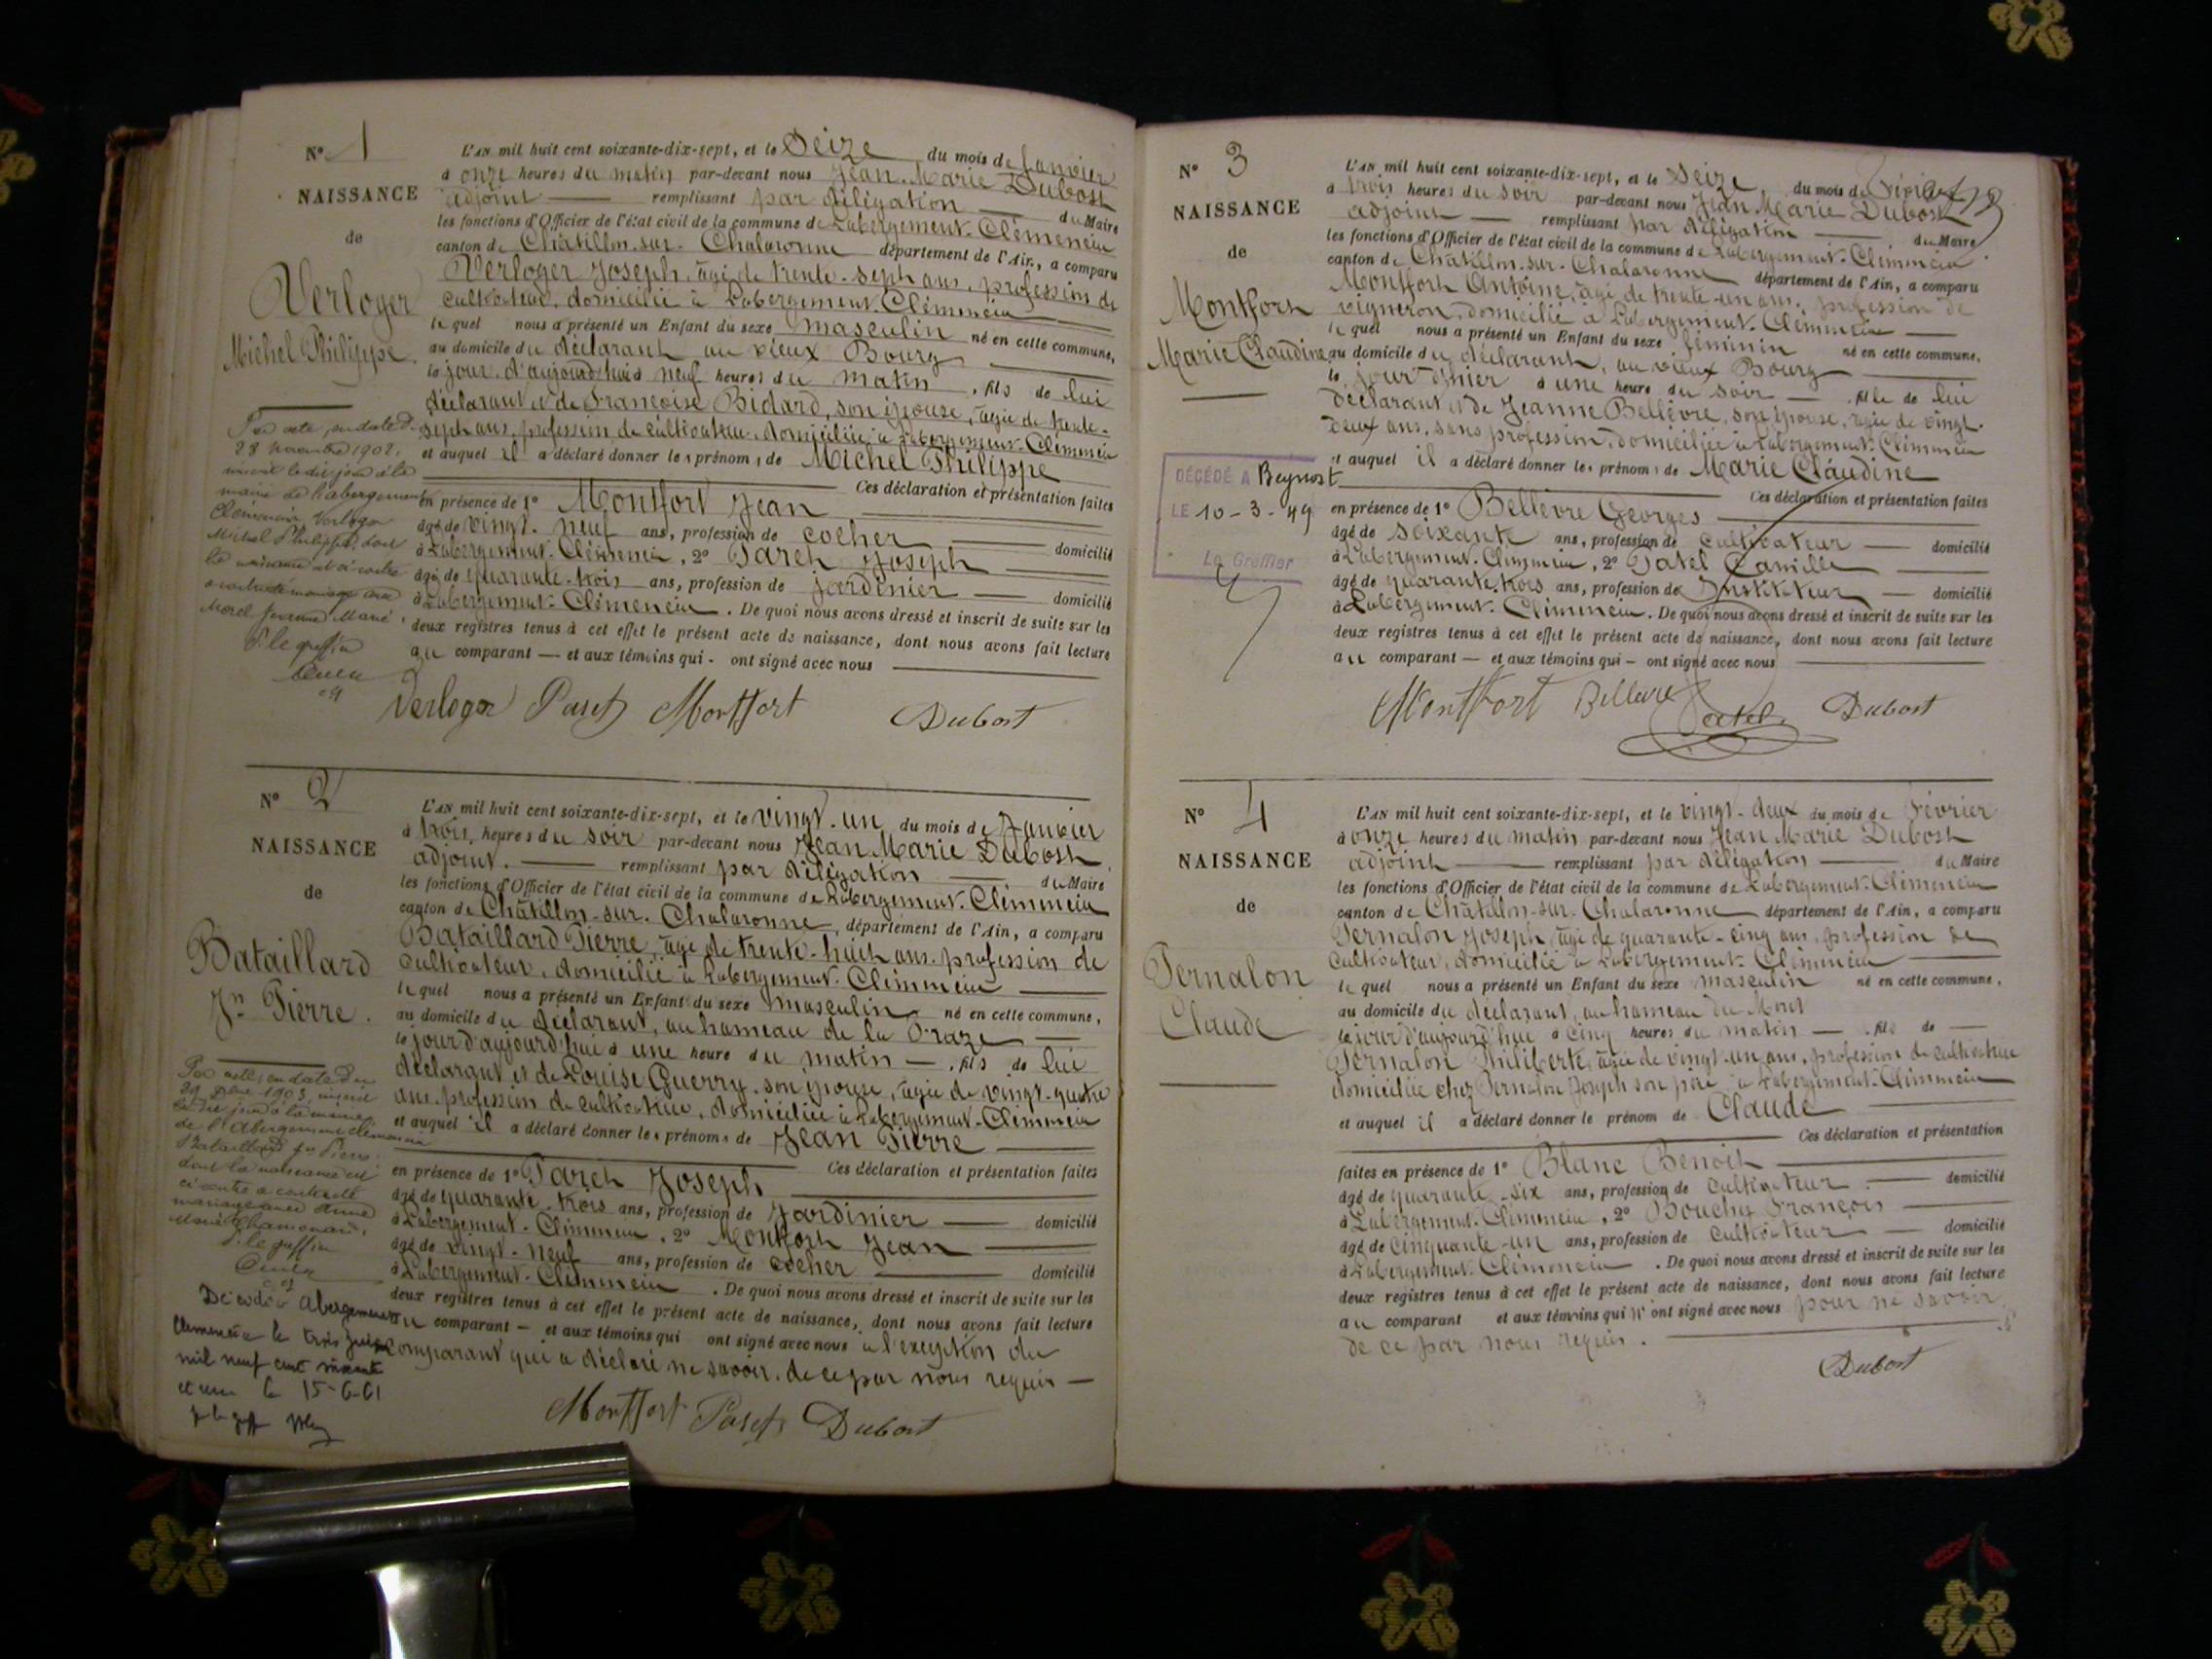 N° 1
NAISSANCE
de
Verloger
Michel Philippe.
L'AN mil huit cent soixante-dix-sept, et le Seize du mois de Janvier
à onze heures du matin par-devant nous Jean Marie Dubost
adjoint remplissant par délégation du Maire
les fonctions d'Officier de l'état civil de la commune de Labergement-Clémencia
canton de Châtillon-sur-Chalaronne département de l'Ain, a comparu
Verloger Joseph, âgé de trente-sept ans, profession de
cultivateur, domicilié à Labergement-Clémencia
lequel nous a présenté un Enfant du sexe masculin né en cette commune,
au domicile du déclarant au vieux Bourg
le jour d'aujourd'hui à neuf heures du matin, fils de lui
déclarant et de Françoise Bidard, son épouse, âgée de trente-
sept ans, profession de cultivateur, domiciliée à Labergement-Clémencia
et auquel il a déclaré donner les prénoms de Michel Philippe
Ces déclaration et présentation faites
en présence de 1° Montfort Jean
âgé de vingt-neuf ans, profession de cocher domicilié
à Labergement-Clémencia, 2° Paret Joseph
âgé de quarante-trois ans, profession de jardinier domicilié
à Labergement-Clémencia. De quoi nous avons dressé et inscrit de suite sur les
deux registres tenus à cet effet le présent acte de naissance, dont nous avons fait lecture
au comparant — et aux témoins qui - ont signé avec nous
Verloger Paret Montfort Dubost
Par acte, en date du
28 novembre 1902,
inscrit le dit jour à la
mairie de l'abergement
Clémencia, Verloger
Michel Philippe, dont
la naissance est ci-contre
a contracté mariage avec
Morel Jeanne Marie
P. le greffier
N° 2
NAISSANCE
de
Bataillard
Jn Pierre.
L'AN mil huit cent soixante-dix-sept, et le vingt-un du mois de Janvier
à trois heures du soir par-devant nous Jean Marie Dubost
adjoint. remplissant par délégation du Maire
les fonctions d'Officier de l'état civil de la commune de Labergement-Clémencia
canton de Châtillon-sur-Chalaronne, département de l'Ain, a comparu
Bataillard Pierre, âgé de trente-huit ans, profession de
cultivateur, domicilié à Labergement-Clémencia
lequel nous a présenté un Enfant du sexe masculin né en cette commune,
au domicile du déclarant, au hameau de la
le jour d'aujourd'hui à une heure du matin — , fils de lui
déclarant et de Louise Guerry, son épouse, âgée de vingt-quatre
ans, profession de cultivateur, domiciliée à Labergement-Clémencia
et auquel il a déclaré donner les prénoms de Jean Pierre
Ces déclaration et présentation faites
en présence de 1° Paret Joseph
âgé de quarante-trois ans, profession de Jardinier domicilié
à Labergement-Clémencia, 2° Montfort Jean
âgé de vingt-neuf ans, profession de cocher domicilié
à Labergement-Clémencia. De quoi nous avons dressé et inscrit de suite sur les
deux registres tenus à cet effet le présent acte de naissance, dont nous avons fait lecture
au comparant — et aux témoins qui ont signé avec nous à l'exception du
comparant qui a déclaré ne savoir, de ce par nous requis —
Montfort Paret Dubost
Par acte en date du
1903, inscrit
le dit jour à la mairie
de l'Abergement clémencia
Bataillard Jn Pierre
dont la naissance est
ci contre a contracté
mariage avec
Marie
P. le greffier
Décédé à Abergement
Clemencia le trois juin
mil neuf cent soixante
et un le 15-6-61
N° 3
NAISSANCE
de
Montfort
Marie Claudine
DÉCÉDÉ A Beynost
LE 10-3-49
Le Greffier
L'AN mil huit cent soixante-dix-sept, et le Seize du mois de Février
à trois heures du soir par-devant nous Jean Marie Dubost
adjoint — remplissant par délégation du Maire
les fonctions d'Officier de l'état civil de la commune de Labergement-Clémencia
canton de Châtillon-sur-Chalaronne département de l'Ain, a comparu
Montfort Antoine, âgé de trente-un ans, profession de
vigneron, domicilié à Labergement-Clémencia
lequel nous a présenté un Enfant du sexe féminin né en cette commune,
au domicile du déclarant, au vieux Bourg
le jour d'hier à une heure du soir — , fille de lui
déclarant et de Jeanne Bellèvre, son épouse, âgée de vingt-
deux ans, sans profession, domiciliée à Labergement-Clémencia
et auquel il a déclaré donner les prénoms de Marie Claudine
Ces déclaration et présentation faites
en présence de 1° Bellèvre Georges
âgé de soixante ans, profession de cultivateur — domicilié
à Labergement-Clémencia, 2° Patel Camille
âgé de quarante-trois ans, profession de Instituteur — domicilié
à Labergement-Clémencia. De quoi nous avons dressé et inscrit de suite sur les
deux registres tenus à cet effet le présent acte de naissance, dont nous avons fait lecture
au comparant — et aux témoins qui — ont signé avec nous
Montfort Bellevre Patel Dubost
N° 4
NAISSANCE
de
Pernalon
Claude
L'AN mil huit cent soixante-dix-sept, et le vingt-deux du mois de Février
à onze heures du matin par-devant nous Jean Marie Dubost
adjoint remplissant par délégation du Maire
les fonctions d'Officier de l'état civil de la commune de Labergement-Clémencia
canton de Châtillon-sur-Chalaronne département de l'Ain, a comparu
Pernalon Joseph, âgé de quarante-cinq ans, profession de
cultivateur, domicilié à Labergement-Clémencia
lequel nous a présenté un Enfant du sexe masculin né en cette commune,
au domicile du déclarant, au hameau du Mont
le jour d'aujourd'hui à cinq heures du matin — , fils de —
Pernalon Philiberte, âgée de vingt-un ans, profession de cultivateur
domiciliée chez Pernalon Joseph son père à Labergement-Clémencia
et auquel il a déclaré donner le prénom de Claude
Ces déclaration et présentation
faites en présence de 1° Blanc Benoit
âgé de quarante-six ans, profession de cultivateur — domicilié
à Labergement-Clémencia, 2° Bouchy François
âgé de cinquante-un ans, profession de cultivateur — domicilié
à Labergement-Clémencia. De quoi nous avons dressé et inscrit de suite sur les
deux registres tenus à cet effet le présent acte de naissance, dont nous avons fait lecture
au comparant et aux témoins qui n'ont signé avec nous pour ne savoir
de ce par nous requis.
Dubost